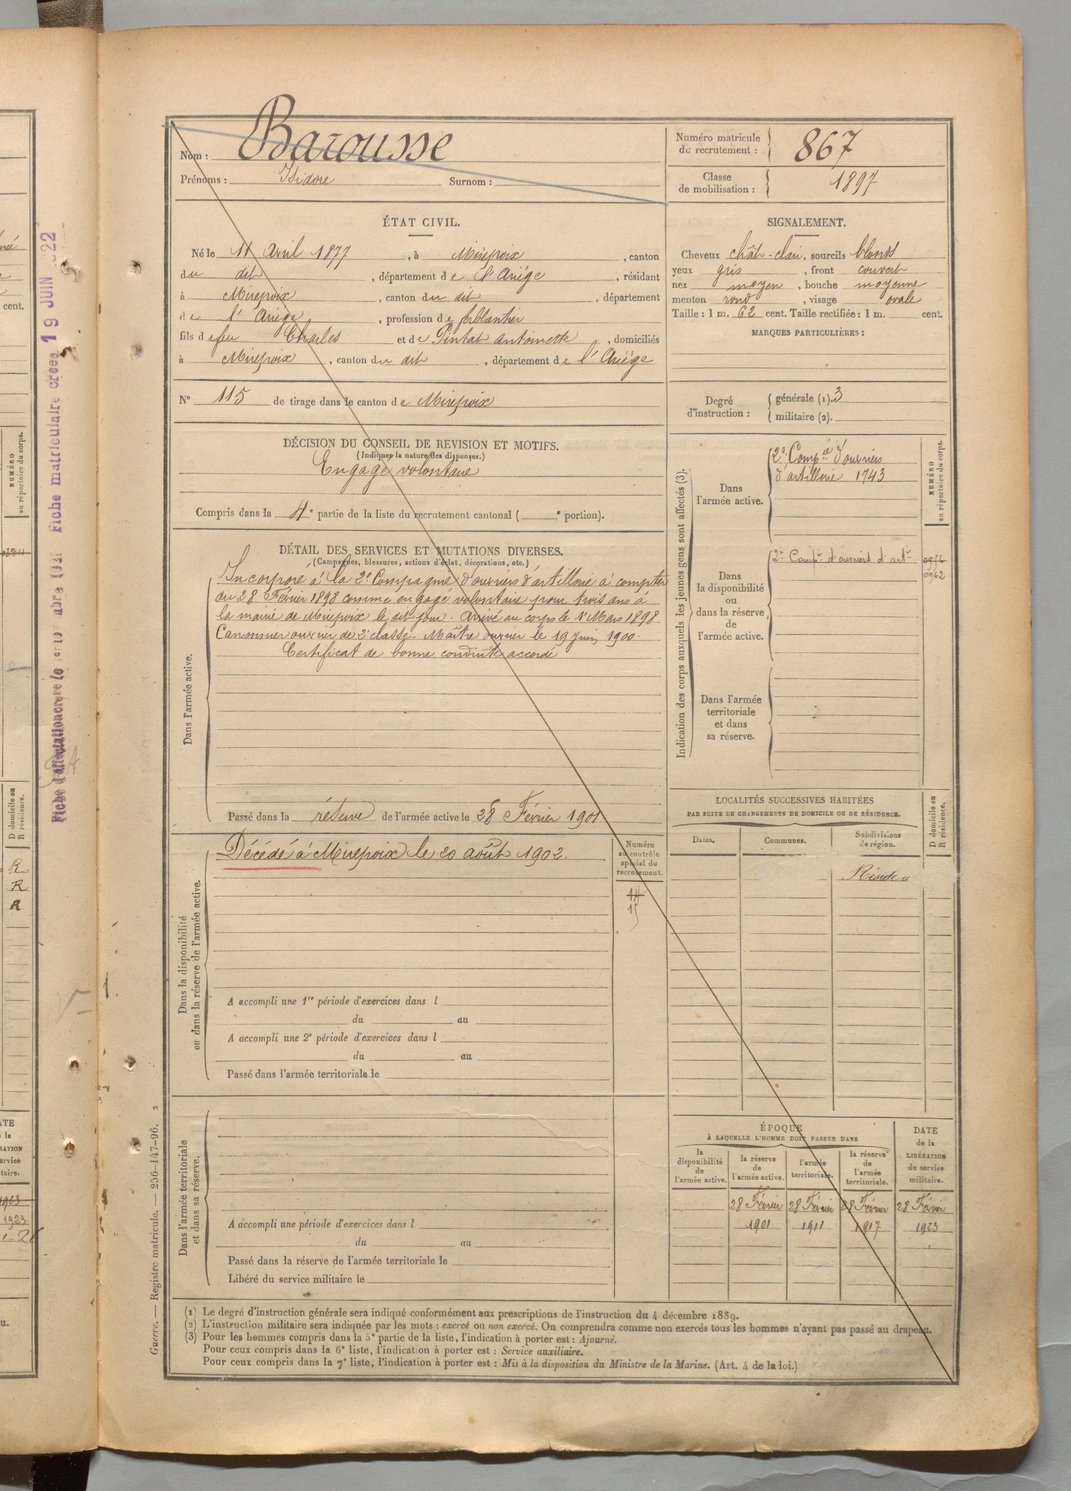 Nom : Barousse
Prénoms : Isidore Surnom :
Numéro matricule du recrutement : 867
Classe de mobilisation : 1897
ÉTAT CIVIL.
Né le 11 Avril 1877, à Mirepoix, canton
du dit, département de l'Ariège, résidant
à Mirepoix, canton du dit, département
de l'Ariège, profession de ferblantier
fils de feu Charles et de Pintat Antoinette, domiciliés
à Mirepoix, canton du dit, département de l'Ariège
N° 115 de tirage dans le canton de Mirepoix
SIGNALEMENT.
Cheveux chât-clair, sourcils blonds
yeux gris, front couvert
nez moyen, bouche moyenne
menton rond, visage ovale
Taille : 1 m. 62 cent. Taille rectifiée : 1 m. cent.
MARQUES PARTICULIÈRES :
Degré d'instruction : générale (1). 3
militaire (2).
DÉCISION DU CONSEIL DE REVISION ET MOTIFS.
(Indiquer la nature des dispenses.)
Engagé volontaire
Compris dans la 4e partie de la liste du recrutement cantonal ( e portion).
DÉTAIL DES SERVICES ET MUTATIONS DIVERSES.
(Campagnes, blessures, actions d'éclat, décorations, etc.)
Dans l'armée active.
Incorporé à la 2e Compagnie d'ouvriers d'artillerie à compter
du 28 Février 1898 comme engagé volontaire pour trois ans à
la mairie de Mirepoix le dit jour. Arrivé au corps le 1er Mars 1898
Canonnier ouvrier de 2e classe. Maître ouvrier le 19 juin 1900.
Certificat de bonne conduite accordé
Passé dans la réserve de l'armée active le 28 Février 1901
Dans la disponibilité ou dans la réserve de l'armée active.
Décédé à Mirepoix le 20 août 1902.
Numéro au contrôle spécial du recrutement.
14
15
A accompli une 1re période d'exercices dans l
du au
A accompli une 2e période d'exercices dans l
du au
Passé dans l'armée territoriale le
Dans l'armée territoriale et dans sa réserve.
A accompli une période d'exercices dans l
du au
Passé dans la réserve de l'armée territoriale le
Libéré du service militaire le
Indication des corps auxquels les jeunes gens sont affectés (3).
NUMÉRO au répertoire du corps.
Dans l'armée active.
2e Compie d'ouvriers
d'artillerie 1743
Dans la disponibilité ou dans la réserve de l'armée active.
2e Compie d'ouvriers d'artie
0962
Dans l'armée territoriale et dans sa réserve.
LOCALITÉS SUCCESSIVES HABITÉES
PAR SUITE DE CHANGEMENTS DE DOMICILE OU DE RÉSIDENCE.
Dates. Communes. Subdivisions de région.
D domicile ou R résidence.
ÉPOQUE
À LAQUELLE L'HOMME DOIT PASSER DANS
la disponibilité de l'armée active.
la réserve de l'armée active.
l'armée territoriale.
la réserve de l'armée territoriale.
DATE de la LIBÉRATION du service militaire.
28 Février 28 Février 28 Février 28 Février
1901 1911 1917 1923
(1) Le degré d'instruction générale sera indiqué conformément aux prescriptions de l'instruction du 4 décembre 1889.
(2) L'instruction militaire sera indiquée par les mots : exercé ou non exercé. On comprendra comme non exercés tous les hommes n'ayant pas passé au drapeau.
(3) Pour les hommes compris dans la 5e partie de la liste, l'indication à porter est : Ajourné.
Pour ceux compris dans la 6e liste, l'indication à porter est : Service auxiliaire.
Pour ceux compris dans la 7e liste, l'indication à porter est : Mis à la disposition du Ministre de la Marine. (Art. 4 de la loi.)
Guerre. — Registre matricule. — 256-147-96. 2
Fiche matriculaire créée 19 JUIN
NUMÉRO au répertoire du corps.
cent.
D domicile ou R résidence.
R
R
R
1923